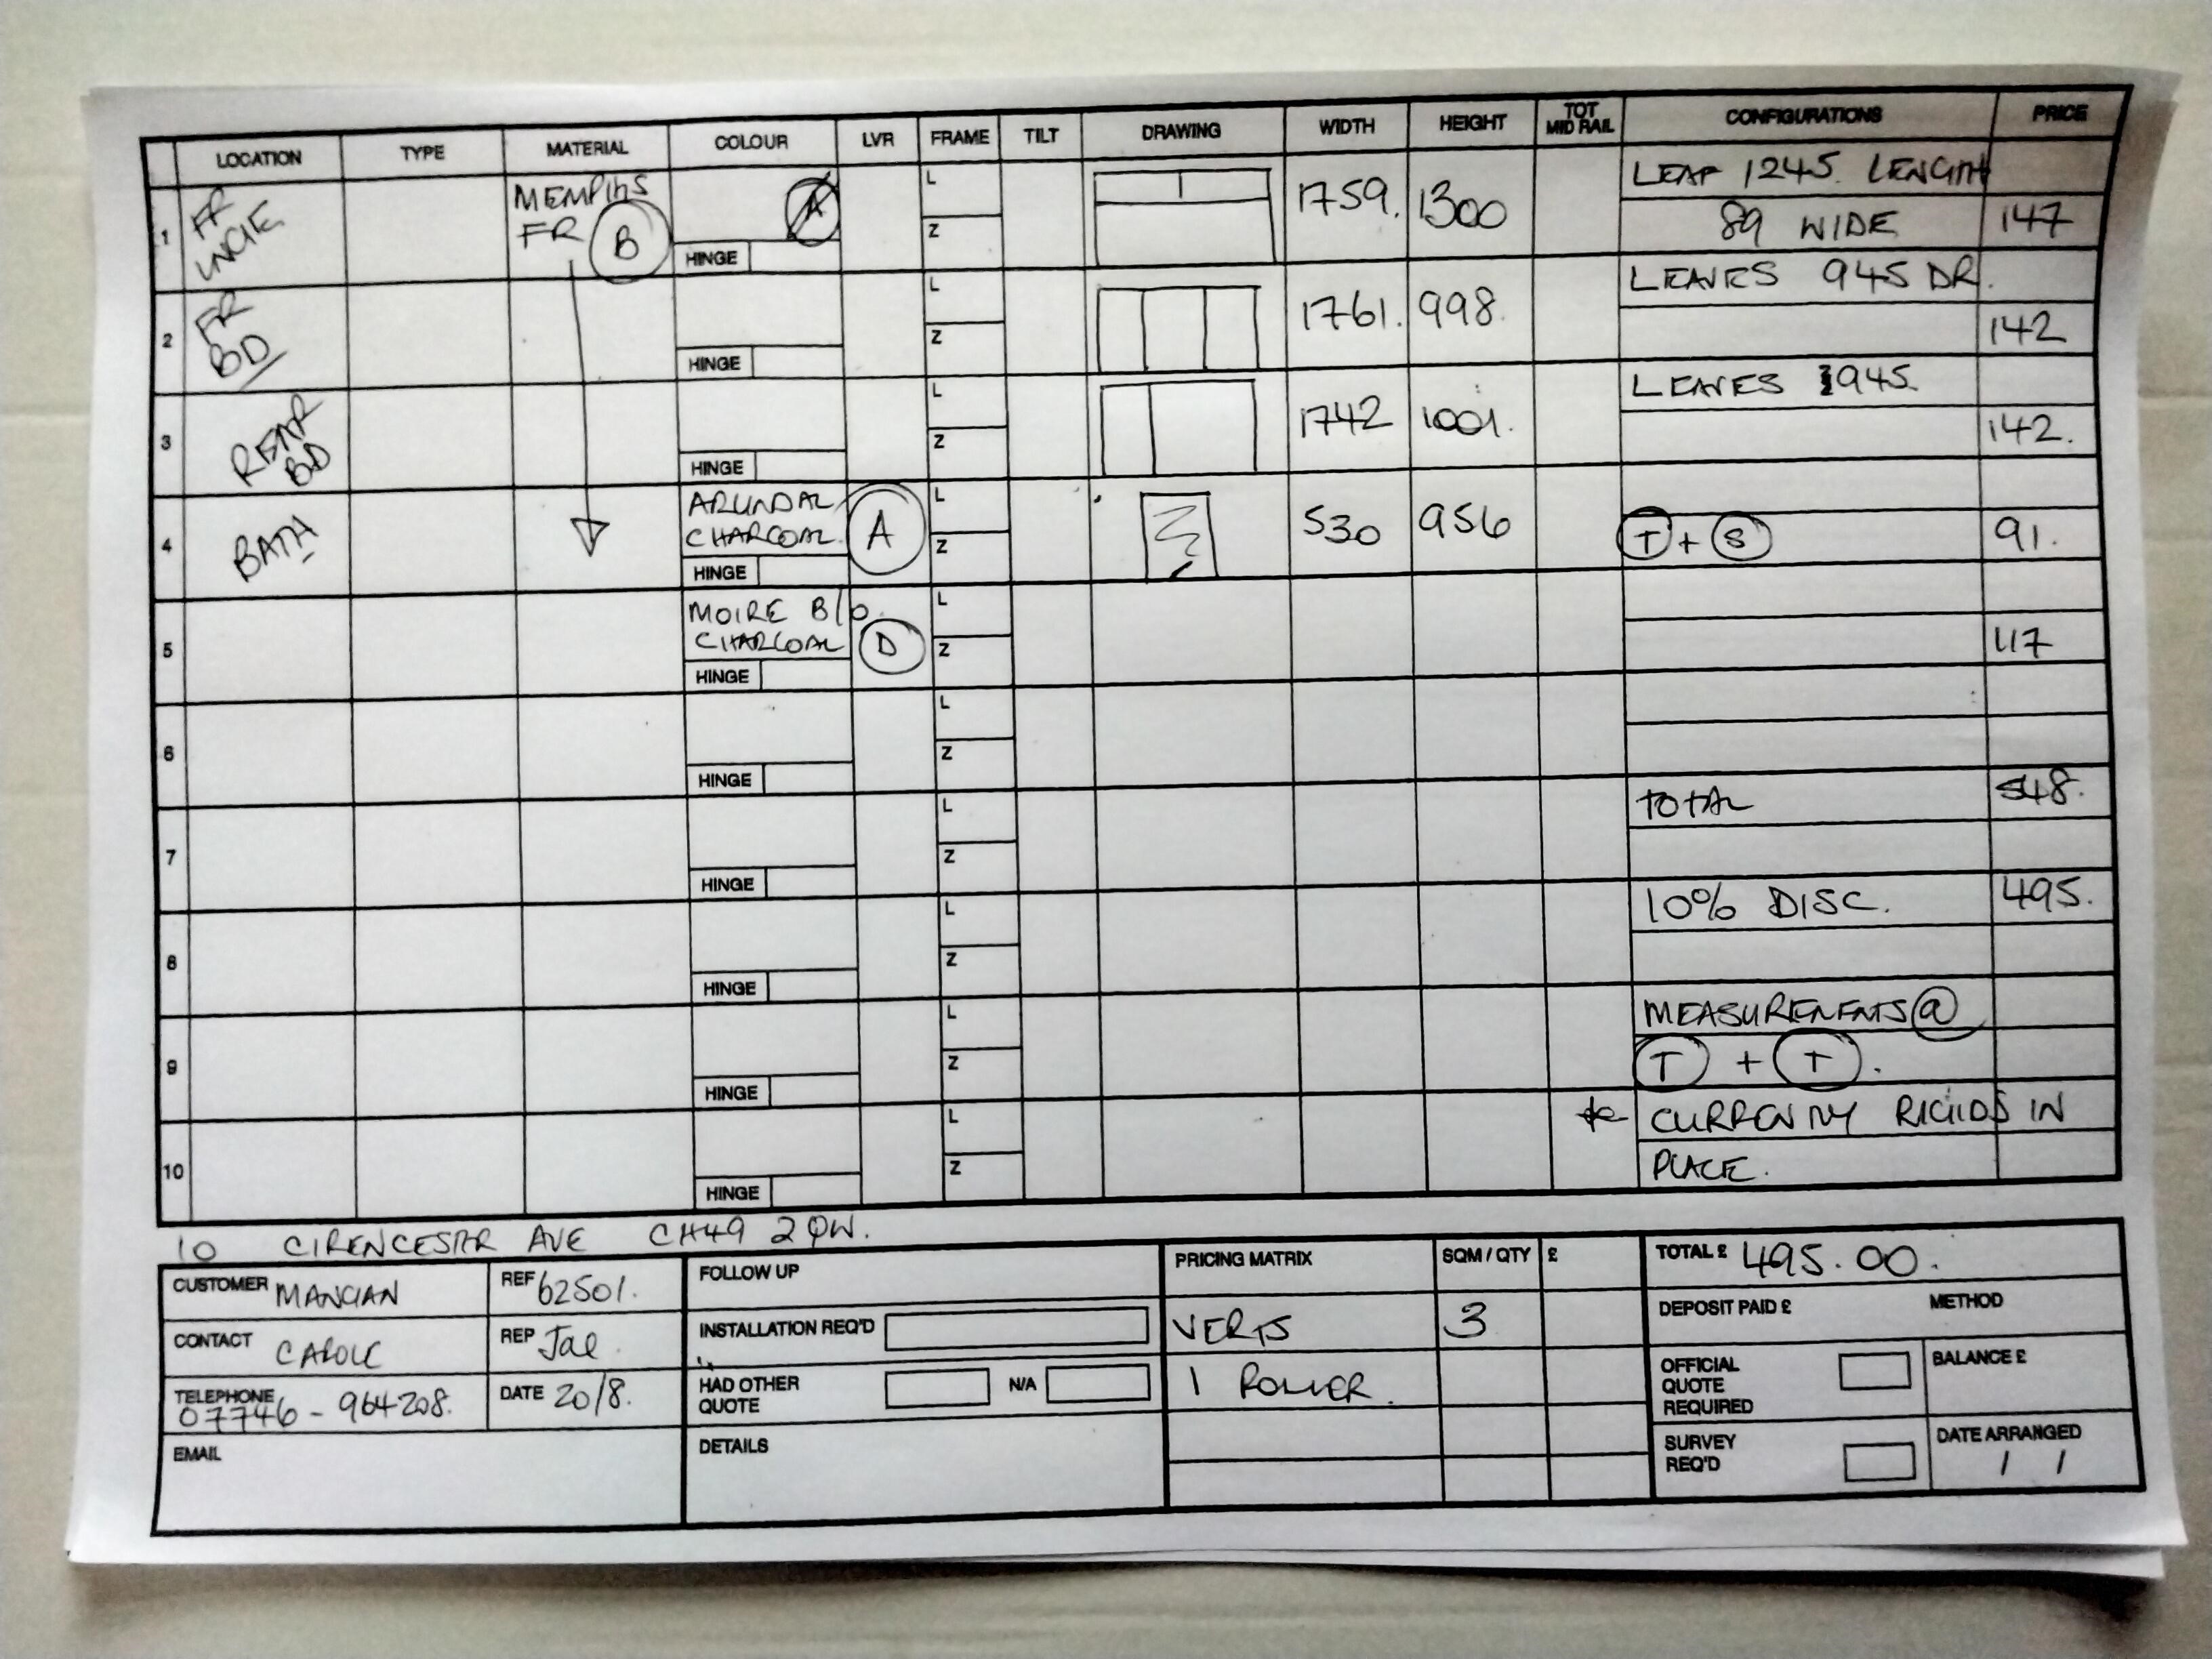 LOCATION TYPE MATERIAL COLOUR LVR FRAME TILT DRAWING WIDTH HEIGHT TOT MID RAIL CONFIGURATIONS PRICE
1 FR MEMPHIS A L 1759. 1300 LEAF 1245. LENGTH
FR B HINGE Z 89 WIDE 147
2 FR L 1761. 998. LEAVES 945 DR.
BD HINGE Z 142
3 REAR L 1742 1001. LEAVES 945.
BD HINGE Z 142.
4 BATH ARUNDAL L 530 956
CHARCOAL. A Z T + S 91.
HINGE
5 MOIRE B/O. L
CHARCOAL D Z 117
HINGE
6 L
Z
HINGE
7 L TOTAL 548.
Z
HINGE
8 L 10% DISC. 495.
Z
HINGE
9 L MEASUREMENTS @
Z T + T.
HINGE
10 L * CURRENTLY RIGIDS IN
Z PLACE.
HINGE
10 CIRENCESTER AVE CH49 2QW.
CUSTOMER REF 62501.
CONTACT CAROLE REP Jae
TELEPHONE 07746 - 964208. DATE 20/8.
EMAIL
FOLLOW UP
INSTALLATION REQ'D
HAD OTHER QUOTE N/A
DETAILS
PRICING MATRIX SQM / QTY £
VERTS 3
1 ROLLER.
TOTAL £ 495.00.
DEPOSIT PAID £ METHOD
OFFICIAL QUOTE REQUIRED BALANCE £
SURVEY REQ'D DATE ARRANGED
/ /